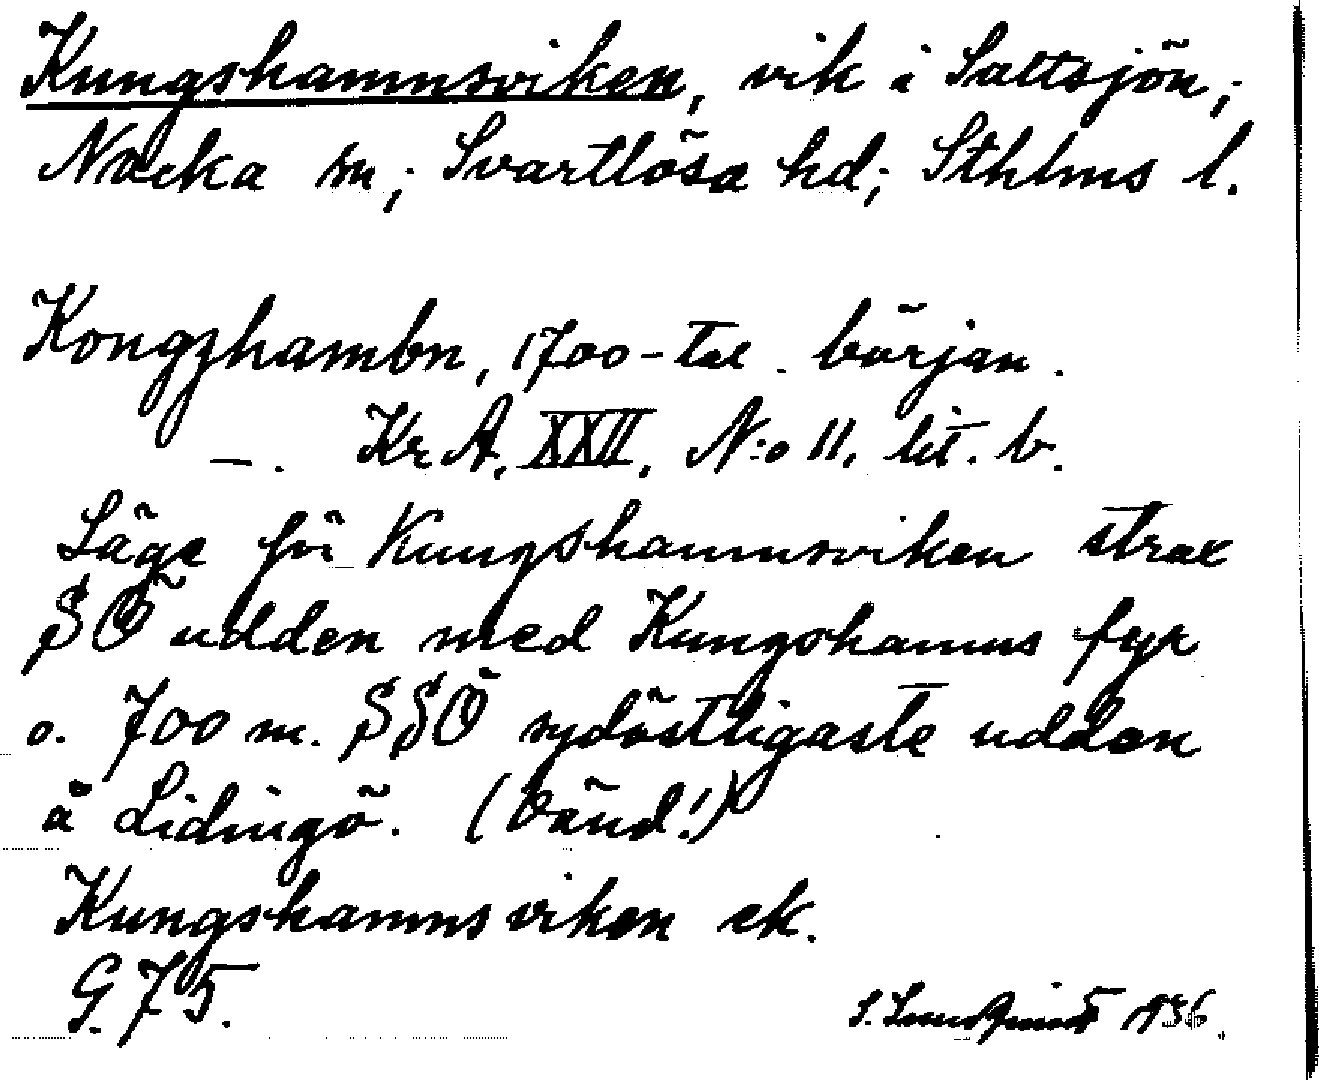 Kungshamnsviken, vik i Saltsjön,
Nacka sn; Svartlösa hd; Sthlms l.
Kongzhambn, 1700-tal. början.
—. Kr A, XXII, N:o 11, lit. b.
Läge för Kungshamnsviken strax
SÖ udden med Kungshamns fyr
o. 700 m. SSÖ sydöstligaste udden
å Lidingö. (Vänd!)
Kungshamnsviken ek.
G. 75.
S. 1936.